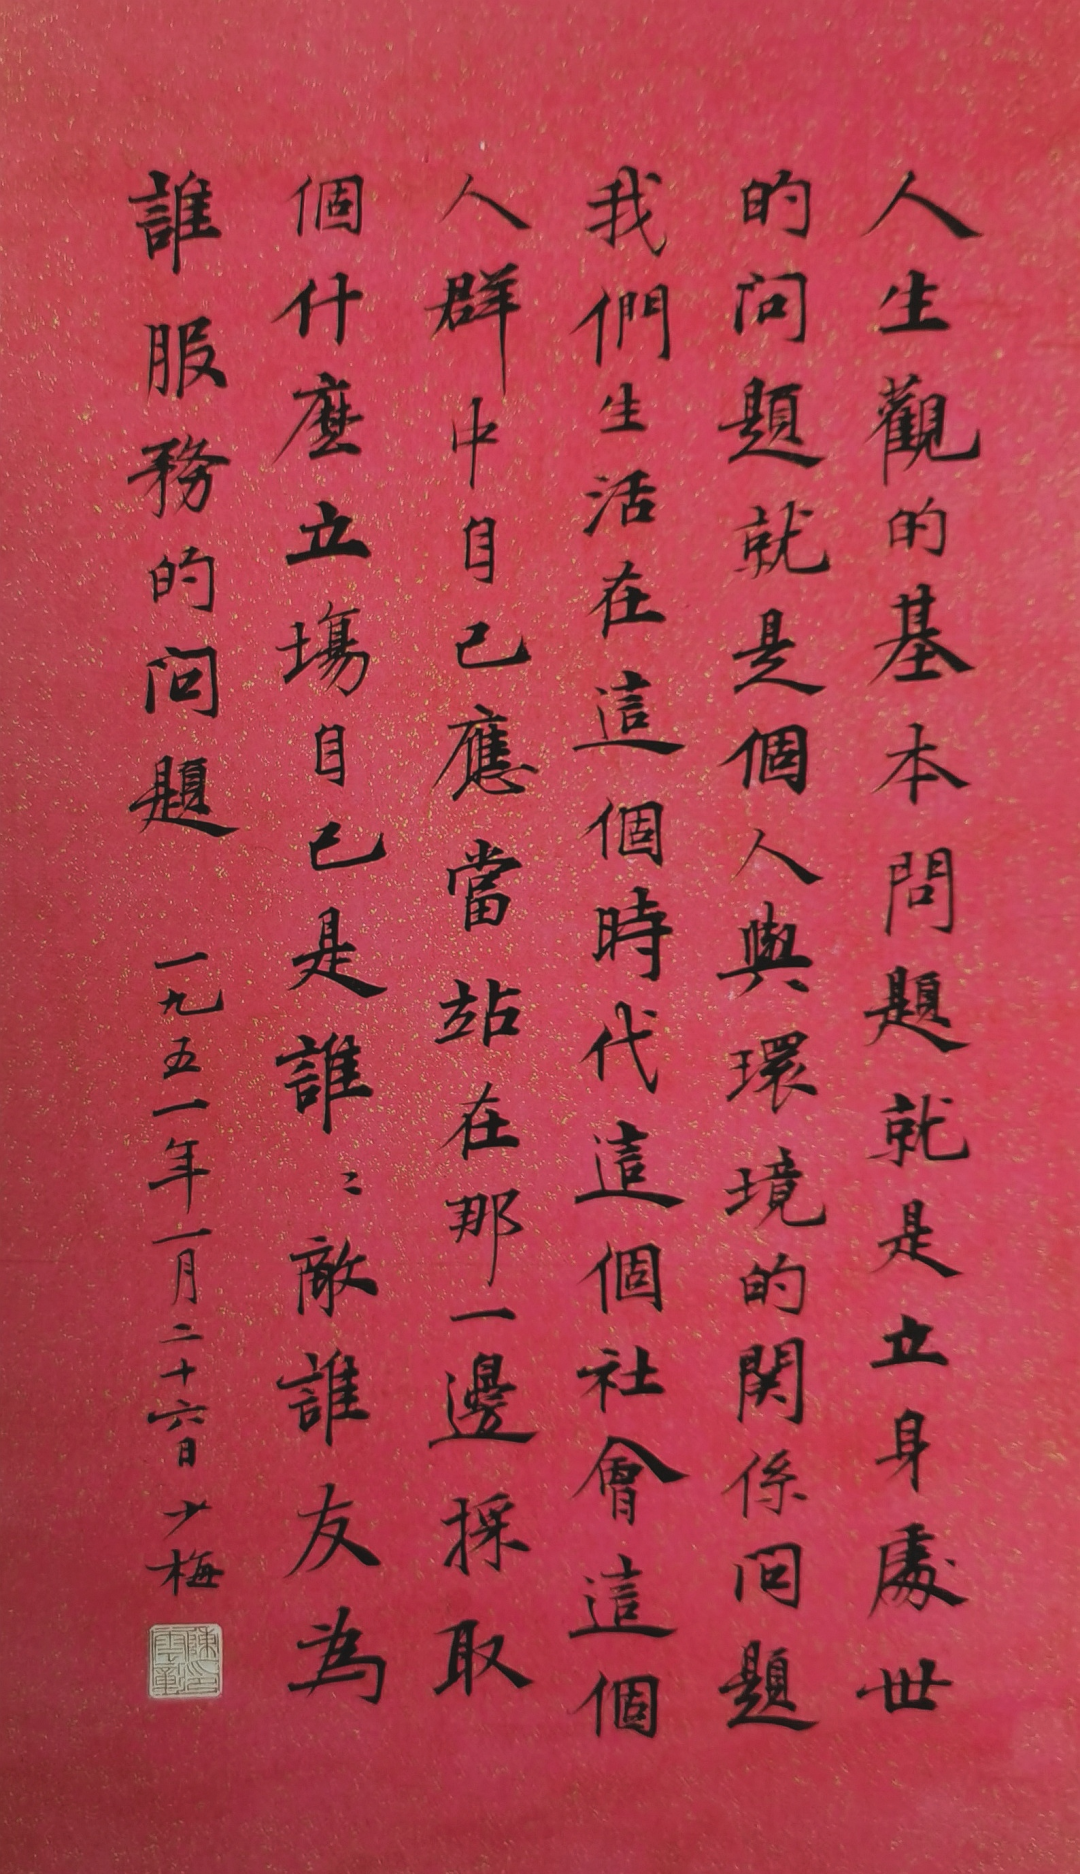 人生觀的基本問題就是立身處世
的问題就是個人與環境的関係问題
我們生活在這個時代這個社會這個
人群中自己應當站在那一邊採取
個什麽立場自己是誰〻敵誰友為
誰服務的问題
一九五一年一月二十六日 少梅